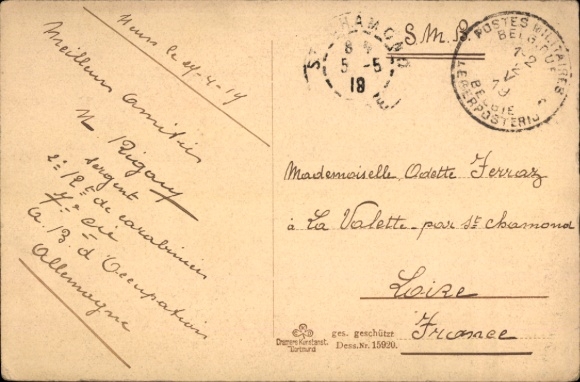 le 24-4-19
Meilleurs Amitiés
Rigaux
sergent
2e de carabiniers
7e Cie
d'Occupation
Allemagne
S.M.
ST CHAMOND
5-5
POSTES MILITAIRES
BELGIQUE
BELGIE
LEGERPOSTERIJ
Mademoiselle Odette Ferraz
à La Valette-par-St Chamond
Loire
France
Cramers Kunstanst.
Dortmund
ges. geschützt
Dess. Nr. 15920.